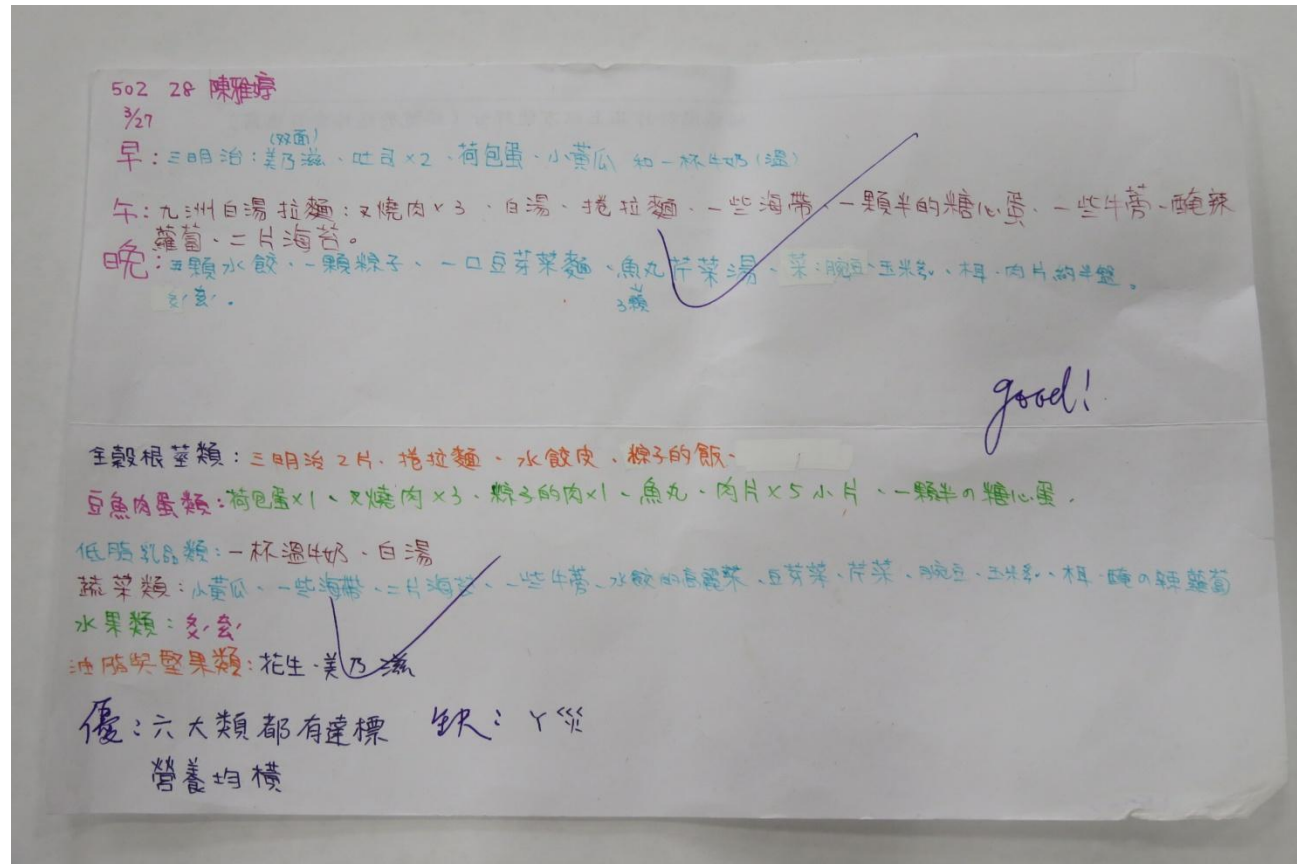 502 28 陳雅婷
3/27
(双面)
早:三明治:美乃滋、吐司×2、荷包蛋、小黃瓜 和一杯牛奶(溫)
午:九洲白湯拉麵:叉燒肉×3、白湯、捲拉麵、一些海帶、一顆半的糖心蛋、一些牛蒡、醃辣
蘿蔔、二片海苔。
晚:五顆水餃、一顆粽子、一口豆芽菜麵、魚丸芹菜湯、菜:豌豆、玉米、木耳、肉片約半盤。
3顆
good!
全穀根莖類:三明治2片、捲拉麵、水餃皮、粽子的飯、
豆魚肉蛋類:荷包蛋×1、叉燒肉×3、粽子的肉×1、魚丸、肉片×5小片、一顆半の糖心蛋.
低脂乳品類:一杯溫牛奶、白湯
蔬菜類:小黃瓜、一些海帶、二片海苔、一些牛蒡、水餃的高麗菜、豆芽菜、芹菜、豌豆、玉米、木耳、醃の辣蘿蔔
水果類:
油脂與堅果類:花生、美乃滋
優:六大類都有達標 缺:ㄚ災
營養均橫